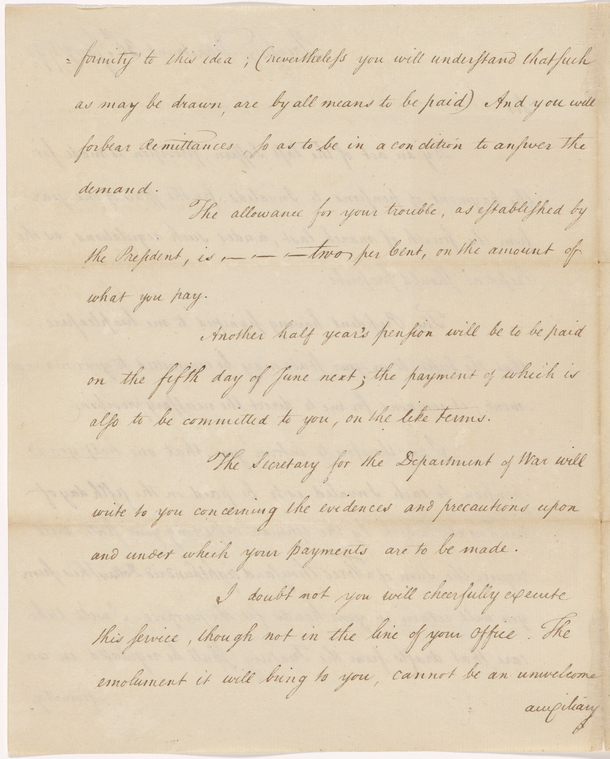 = formity to this idea; (nevertheless you will understand that such
as may be drawn, are by all means to be paid) And you will
forbear Remittances, so as to be in a condition to answer the
demand.
The allowance for your trouble, as established by
the President, is — — — two per Cent, on the amount of
what you pay.
Another half year's pension will be to be paid
on the fifth day of June next; the payment of which is
also to be committed to you, on the like terms.
The Secretary for the Department of War will
write to you concerning the evidences and precautions upon
and under which your payments are to be made.
I doubt not you will cheerfully execute
this service, though not in the line of your Office. The
emolument it will bring to you, cannot be an unwelcome
auxiliary